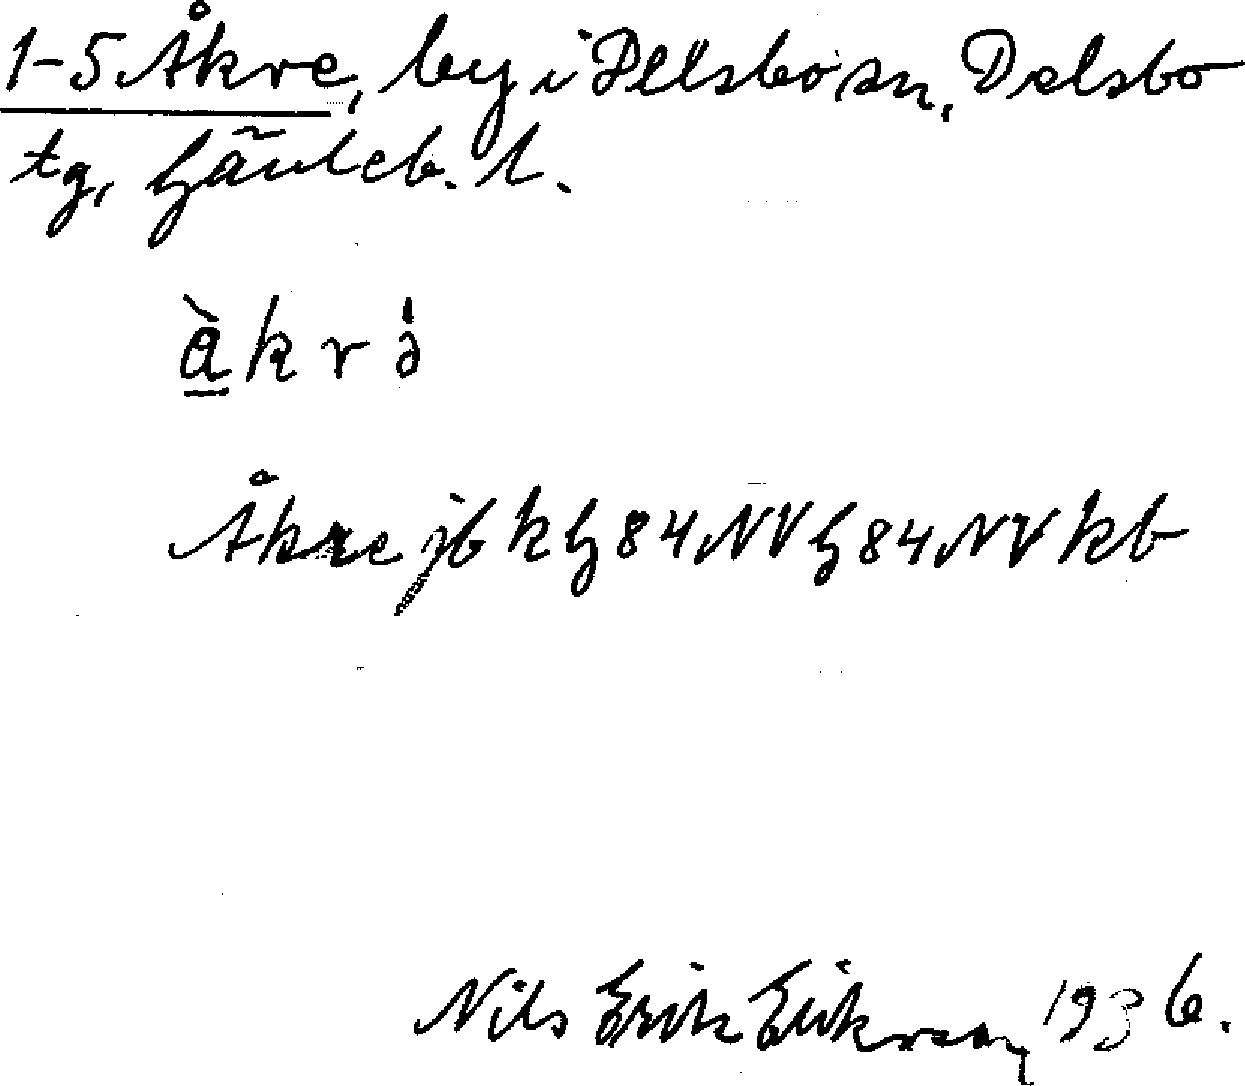 1-5 Åkre, by i Delsbo sn, Delsbo
tg, Gävleb. l.
åkrə
Åkre jb k G 84 NV G 84 NV kb
Nils Erik Erikson 1936.